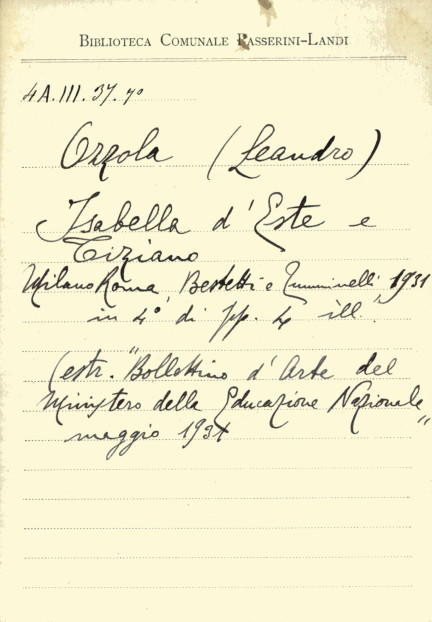 BIBLIOTECA COMUNALE PASSERINI-LANDI
4A.III.37.7º
Ozzola (Leandro)
Isabella d'Este e
Tiziano
Milano Roma, Bestetti e Tumminelli 1931
in 4º, di pp. 4 ill.
(estr. "Bollettino d'Arte del
Ministero della Educazione Nazionale"
maggio 1931